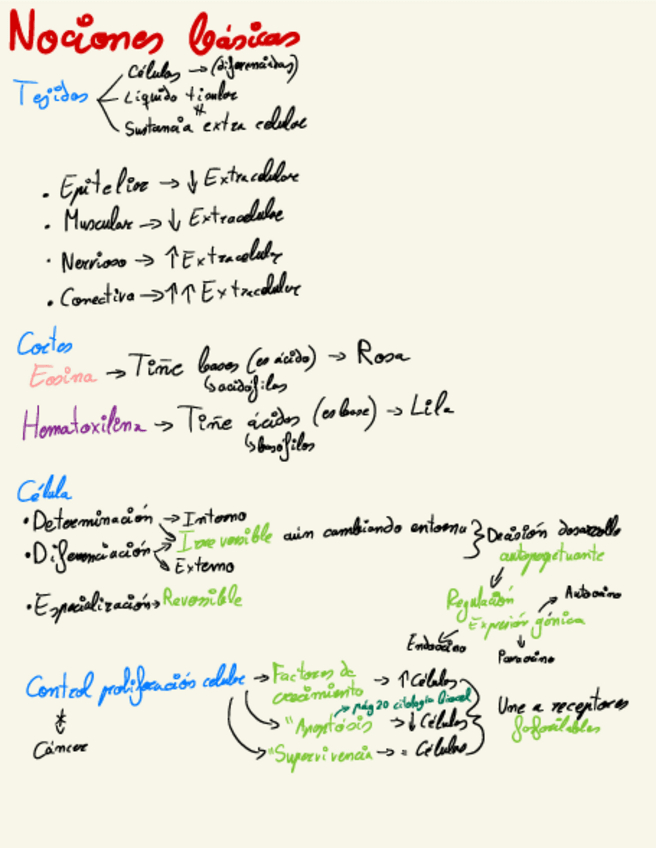 Nociones básicas
Tejidos
Células → (diferenciadas)
Líquido tisular
*
Sustancia extra celular
• Epitelior → ↓ Extracelular
• Muscular → ↓ Extracelular
• Nervioso → ↑ Extracelular
• Conectivo → ↑↑ Extracelular
Cortes
Eosina → Tiñe bases (es ácido) → Rosa
↳ acidófilos
Hematoxilina → Tiñe ácidos (es base) → Lila
↳ basófilos
Célula
• Determinación → Interno
• Diferenciación → Irreversible aún cambiando entorno } Decisión desarrollo
→ Externo
autoperpetuante
• Especialización → Reversible
Regulación
Expresión génica
Autocrino
Endocrino
Paracrino
Control proliferación celular → Factores de
crecimiento → ↑ Células
→ pág 20 citología
" Apoptósis → ↓ Células
" Supervivencia → = Células
Une a receptores
fosforilables
*
Cáncer